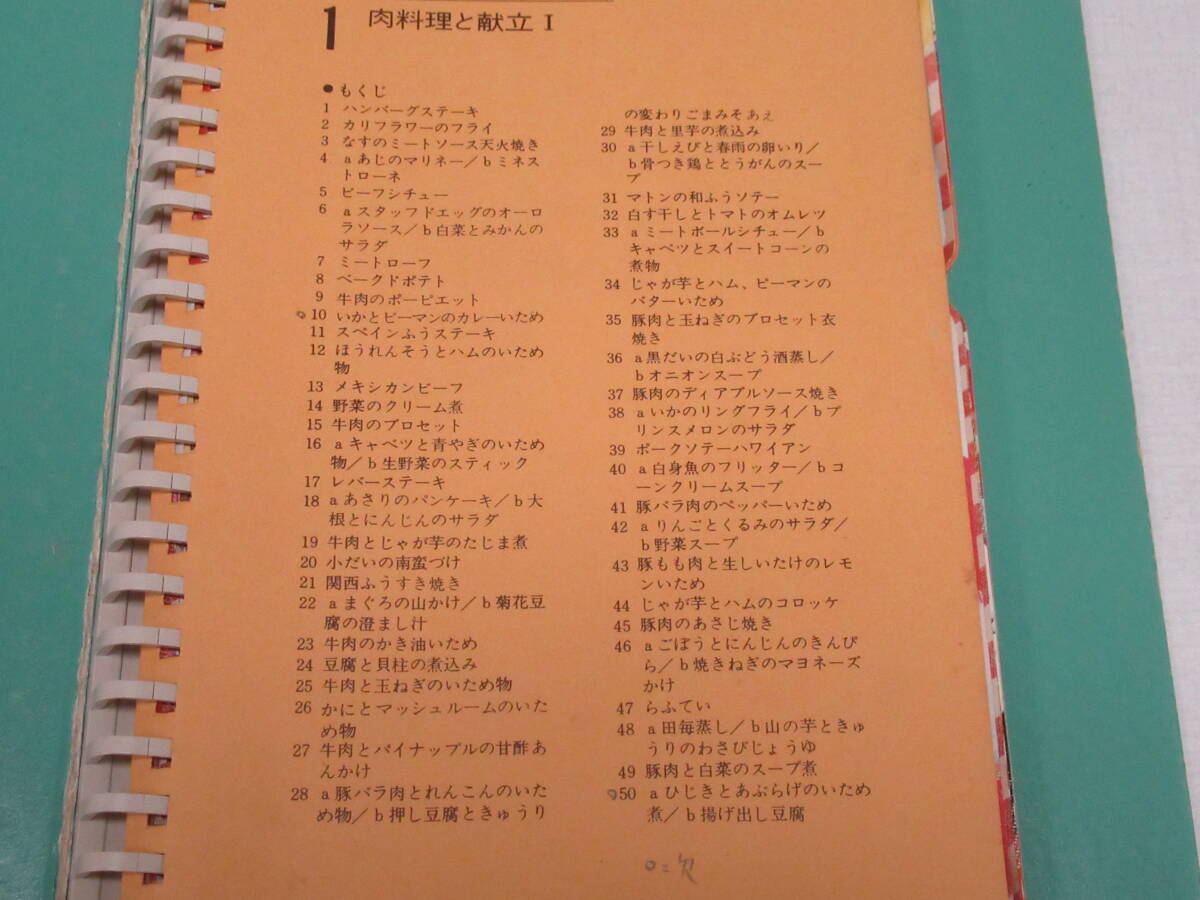 1 肉料理と献立 I
●もくじ
1 ハンバーグステーキ
2 カリフラワーのフライ
3 なすのミートソース天火焼き
4 aあじのマリネー/bミネス
トローネ
5 ビーフシチュー
6 aスタッフドエッグのオーロ
ラソース/b白菜とみかんの
サラダ
7 ミートローフ
8 ベークドポテト
9 牛肉のポーピエット
○10 いかとピーマンのカレーいため
11 スペインふうステーキ
12 ほうれんそうとハムのいため
物
13 メキシカンビーフ
14 野菜のクリーム煮
15 牛肉のブロセット
16 aキャベツと青やぎのいため
物/b生野菜のスティック
17 レバーステーキ
18 aあさりのパンケーキ/b大
根とにんじんのサラダ
19 牛肉とじゃが芋のたじま煮
20 小だいの南蛮づけ
21 関西ふうすき焼き
22 aまぐろの山かけ/b菊花豆
腐の澄まし汁
23 牛肉のかき油いため
24 豆腐と貝柱の煮込み
25 牛肉と玉ねぎのいため物
26 かにとマッシュルームのいた
め物
27 牛肉とパイナップルの甘酢あ
んかけ
28 a豚バラ肉とれんこんのいた
め物/b押し豆腐ときゅうり
の変わりごまみそあえ
29 牛肉と里芋の煮込み
30 a干しえびと春雨の卵いり/
b骨つき鶏ととうがんのスー
プ
31 マトンの和ふうソテー
32 白す干しとトマトのオムレツ
33 aミートボールシチュー/b
キャベツとスイートコーンの
煮物
34 じゃが芋とハム、ピーマンの
バターいため
35 豚肉と玉ねぎのブロセット衣
焼き
36 a黒だいの白ぶどう酒蒸し/
bオニオンスープ
37 豚肉のディアブルソース焼き
38 aいかのリングフライ/bプ
リンスメロンのサラダ
39 ポークソテーハワイアン
40 a白身魚のフリッター/bコ
ーンクリームスープ
41 豚バラ肉のペッパーいため
42 aりんごとくるみのサラダ/
b野菜スープ
43 豚もも肉と生しいたけのレモ
ンいため
44 じゃが芋とハムのコロッケ
45 豚肉のあさじ焼き
46 aごぼうとにんじんのきんぴ
ら/b焼きねぎのマヨネーズ
かけ
47 らふてい
48 a田毎蒸し/b山の芋ときゅ
うりのわさびじょうゆ
49 豚肉と白菜のスープ煮
○50 aひじきとあぶらげのいため
煮/b揚げ出し豆腐
○=欠